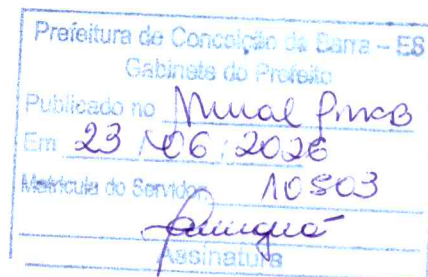 Prefeitura de Conceição da Barra – ES
Gabinete do Prefeito
Publicado no Mural PMCB
Em 23 / 06 / 2026
Matrícula do Servidor: 10803
Assinatura